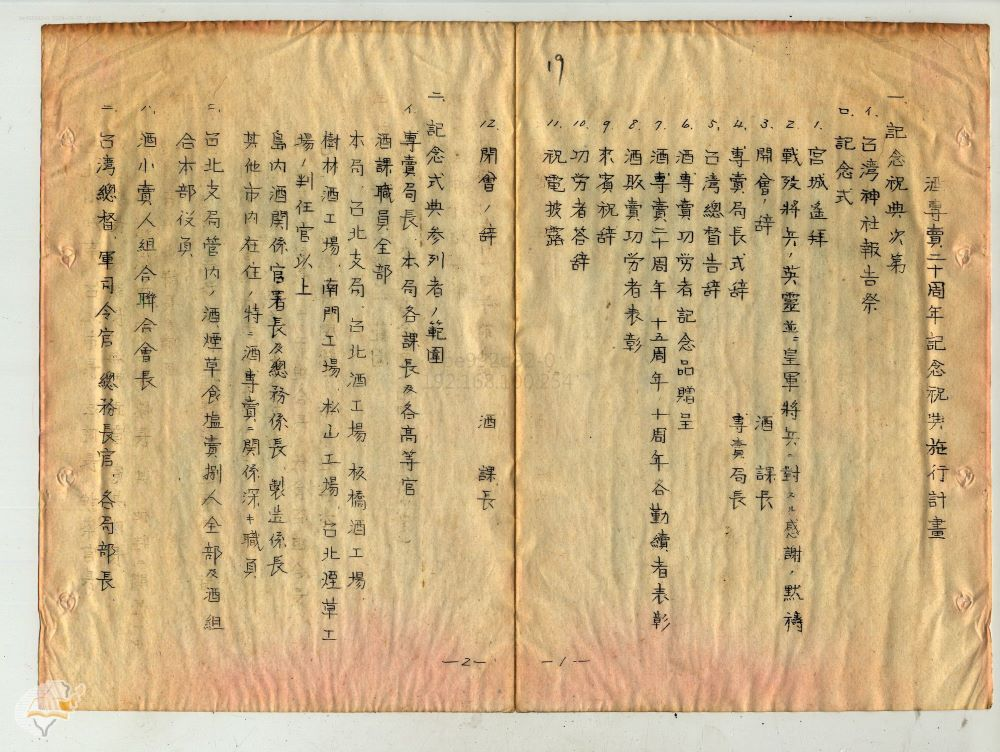 19
酒專賣二十周年記念祝典施行計畫
一、記念祝典次第
イ、台湾神社報告祭
ロ、記念式
1. 宮城遥拜
2. 戰歿將兵ノ英靈並ニ皇軍將兵ニ對スル感謝ノ默禱
3. 開會ノ辞 酒課長
4. 專賣局長式辞 專賣局長
5. 台湾總督告辞
6. 酒專賣功労者記念品贈呈
7. 酒專賣二十周年、十五周年、十周年各勤續者表彰
8. 酒販賣功労者表彰
9. 來賓祝辞
10. 功労者答辞
11. 祝電披露
—1—
12. 閉會ノ辞 酒課長
二、記念式典参列者ノ範圍
イ、專賣局長、本局各課長及各高等官
酒課職員全部
本局、台北支局、台北酒工場、板橋酒工場、
樹林酒工場、南門工場、松山工場、台北煙草工
場ノ判任官以上
島内酒関係官署長及總務係長、製造係長
其他市内在住ノ特ニ酒專賣ニ関係深キ職員
ロ、台北支局管内ノ酒煙草食塩賣捌人全部及酒組
合本部役員
ハ、酒小賣人組合聯合會長
ニ、台湾總督、軍司令官、總務長官、各局部長、
—2—